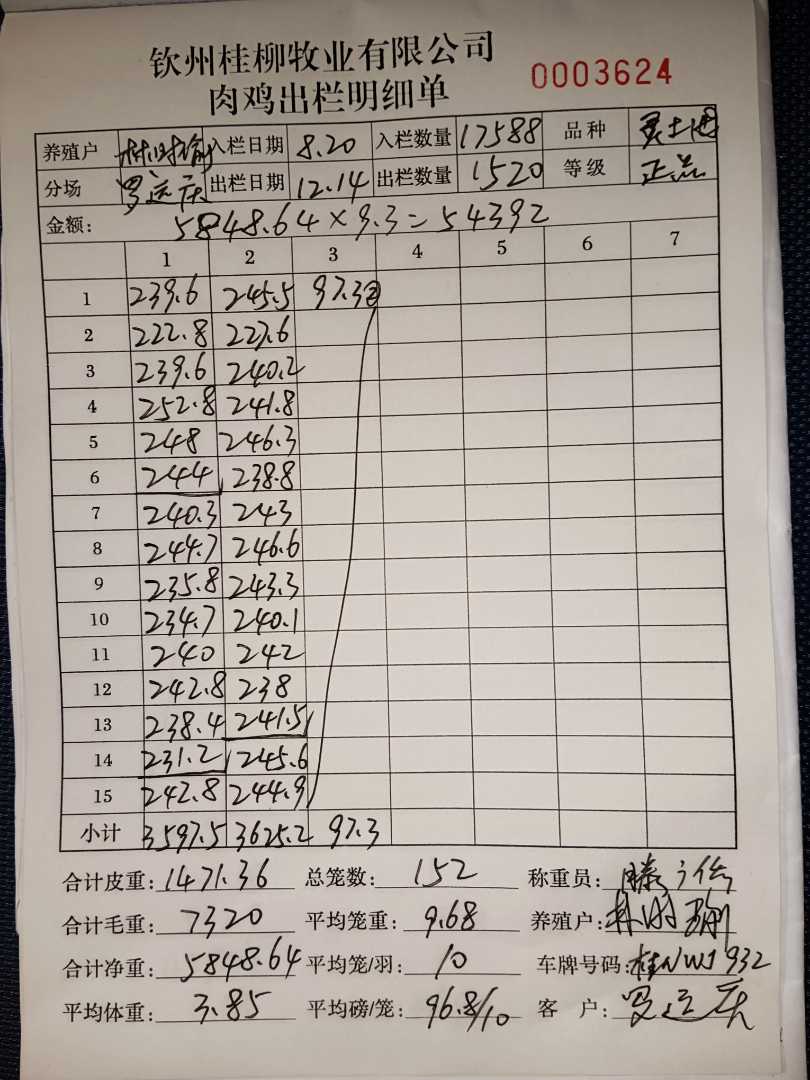 钦州桂柳牧业有限公司
0003624
肉鸡出栏明细单
养殖户 林时瑜 入栏日期 8.20 入栏数量 17588 品种
分场 罗运庆 出栏日期 12.14 出栏数量 1520 等级 正品
金额: 5848.64×9.3=54392
1 2 3 4 5 6 7
1 239.6 245.5 97.3②
2 222.8 227.6
3 239.6 240.2
4 252.8 241.8
5 248 246.3
6 244 238.8
7 240.3 243
8 244.7 246.6
9 235.8 243.3
10 234.7 240.1
11 240 242
12 242.8 238
13 238.4 241.5
14 231.2 245.6
15 242.8 244.9
小计 3597.5 3625.2 97.3
合计皮重: 1471.36 总笼数: 152 称重员: 滕
合计毛重: 7320 平均笼重: 9.68 养殖户: 林时瑜
合计净重: 5848.64 平均笼/羽: 10 车牌号码: 桂NWJ932
平均体重: 3.85 平均磅/笼: 96.8/10 客 户: 罗运庆